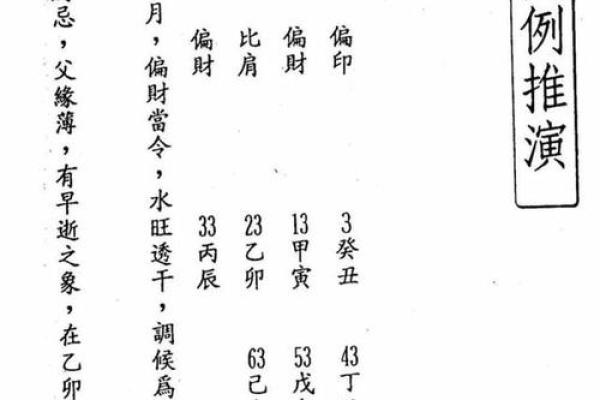 例推演
偏印 3癸丑 43丁
偏財 13甲寅 53戊
比肩 23乙卯 63己
偏財 33丙辰
月，偏財當令，水旺透干，調候爲
忌，父緣薄，有早逝之象，在乙卯